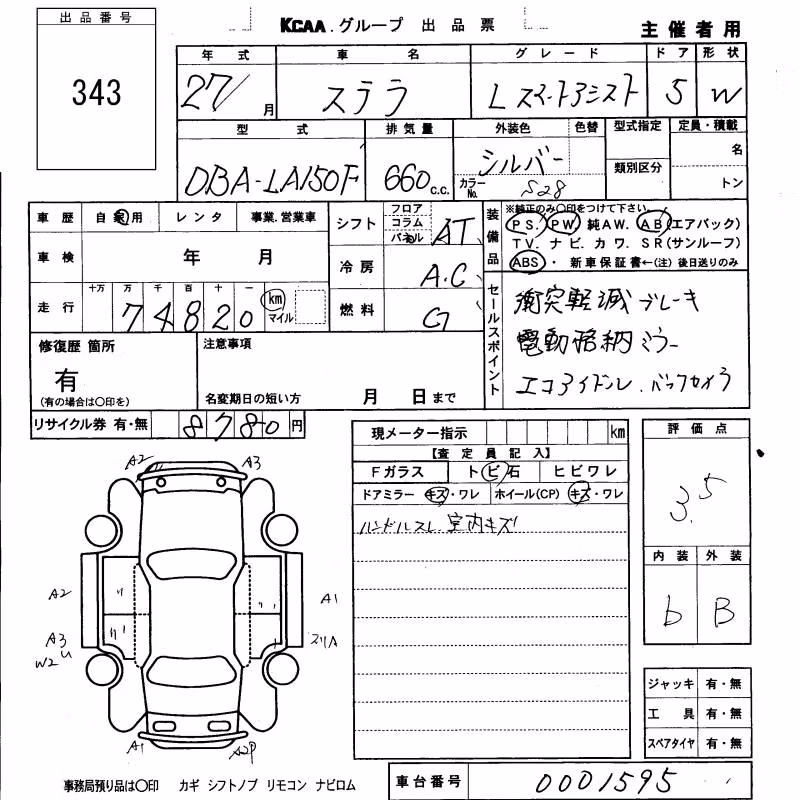 出品番号
343
KCAA.グループ 出品票
主催者用
年式 車名 グレード ドア 形状
27/ 月 ステラ Lスマートアシスト 5 W
型式 排気量 外装色 色替 型式指定 定員・積載
DBA-LA150F 660 c.c. シルバー 類別区分 名
カラーNo. S28 トン
車歴 自家用 レンタ 事業.営業車
シフト フロア コラム パネル AT
装備品 ※純正のみ○印をつけて下さい。
PS. PW. 純AW. AB(エアバック)
TV. ナビ. カワ. SR(サンルーフ)
ABS ・ 新車保証書←(注)後日送りのみ
車検 年 月
冷房 A.C
走行 十万 万 千 百 十 一
74820 km マイル
燃料 G
セールスポイント
衝突軽減ブレーキ
電動格納ミラー
エコアイドル.バックカメラ
修復歴 箇所
有
(有の場合は○印を)
注意事項
名変期日の短い方 月 日まで
リサイクル券 有・無 8780 円
現メーター指示 km
【査定員記入】
Fガラス トビ石 ヒビワレ
ドアミラー キズ・ワレ ホイール(CP) キズ・ワレ
ハンドルスレ 室内キズ
評価点
3.5
内装 外装
b B
A2 A3
A2 A1
A3
W2
A1 A2P
ジャッキ 有・無
工具 有・無
スペアタイヤ 有・無
事務局預り品は○印 カギ シフトノブ リモコン ナビロム
車台番号 0001595